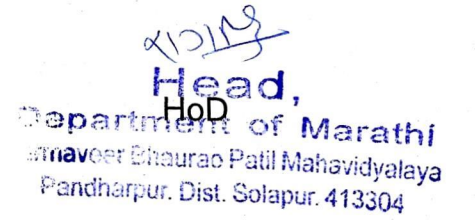 Head,
HoD
Department of Marathi
Bhaurao Patil Mahavidyalaya
Pandharpur. Dist. Solapur. 413304